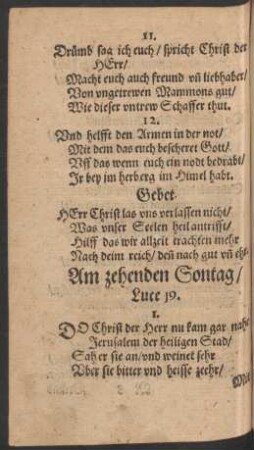 11.
Drümb sag ich euch/ spricht Christ der
HErr/
Macht euch auch freund vñ liebhaber/
Von vngetrewen Mammons gut/
Wie dieser vntrew Schaffer thut.
12.
Vnd helfft den Armen in der not/
Mit dem das euch bescheret Gott/
Vff das wenn euch ein nodt bedrabt/
Ir bey im herberg im Himel habt.
Gebet.
HErr Christ las vns verlassen nicht/
Was vnser Seelen heil antrifft/
Hilff das wir allzeit trachten mehr
Nach deim reich/ deñ nach gut vñ ehr.
Am zehenden Sontag/
Luce 19.
1.
DO Christ der Herr nu kam gar nahe
Jerusalem der heiligen Stad/
Sah er sie an/vnd weinet sehr
Vber sie bitter vnd heisse zeehr/
Mit